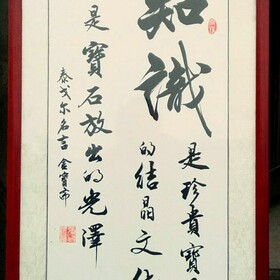 知識
是珍貴寶
的結晶文化
是寶石放出的光澤
泰戈尔名言 金寶希